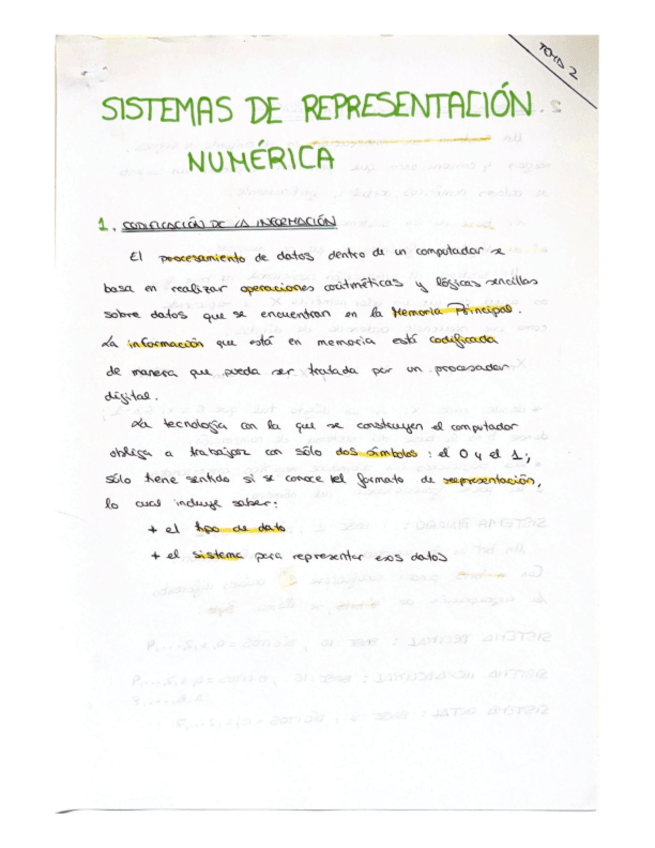 TEMA 2
SISTEMAS DE REPRESENTACIÓN
NUMÉRICA
1. CODIFICACIÓN DE LA INFORMACIÓN
El procesamiento de datos dentro de un computador se
basa en realizar operaciones aritméticas y lógicas sencillas
sobre datos que se encuentran en la Memoria Principal.
La información que está en memoria está codificada
de manera que pueda ser tratada por un procesador
digital.
La tecnología con la que se construyen el computador
obliga a trabajar con sólo dos símbolos : el 0 y el 1;
sólo tiene sentido si se conoce el formato de representación,
lo cual incluye saber:
+ el tipo de dato
+ el sistema para representar esos datos